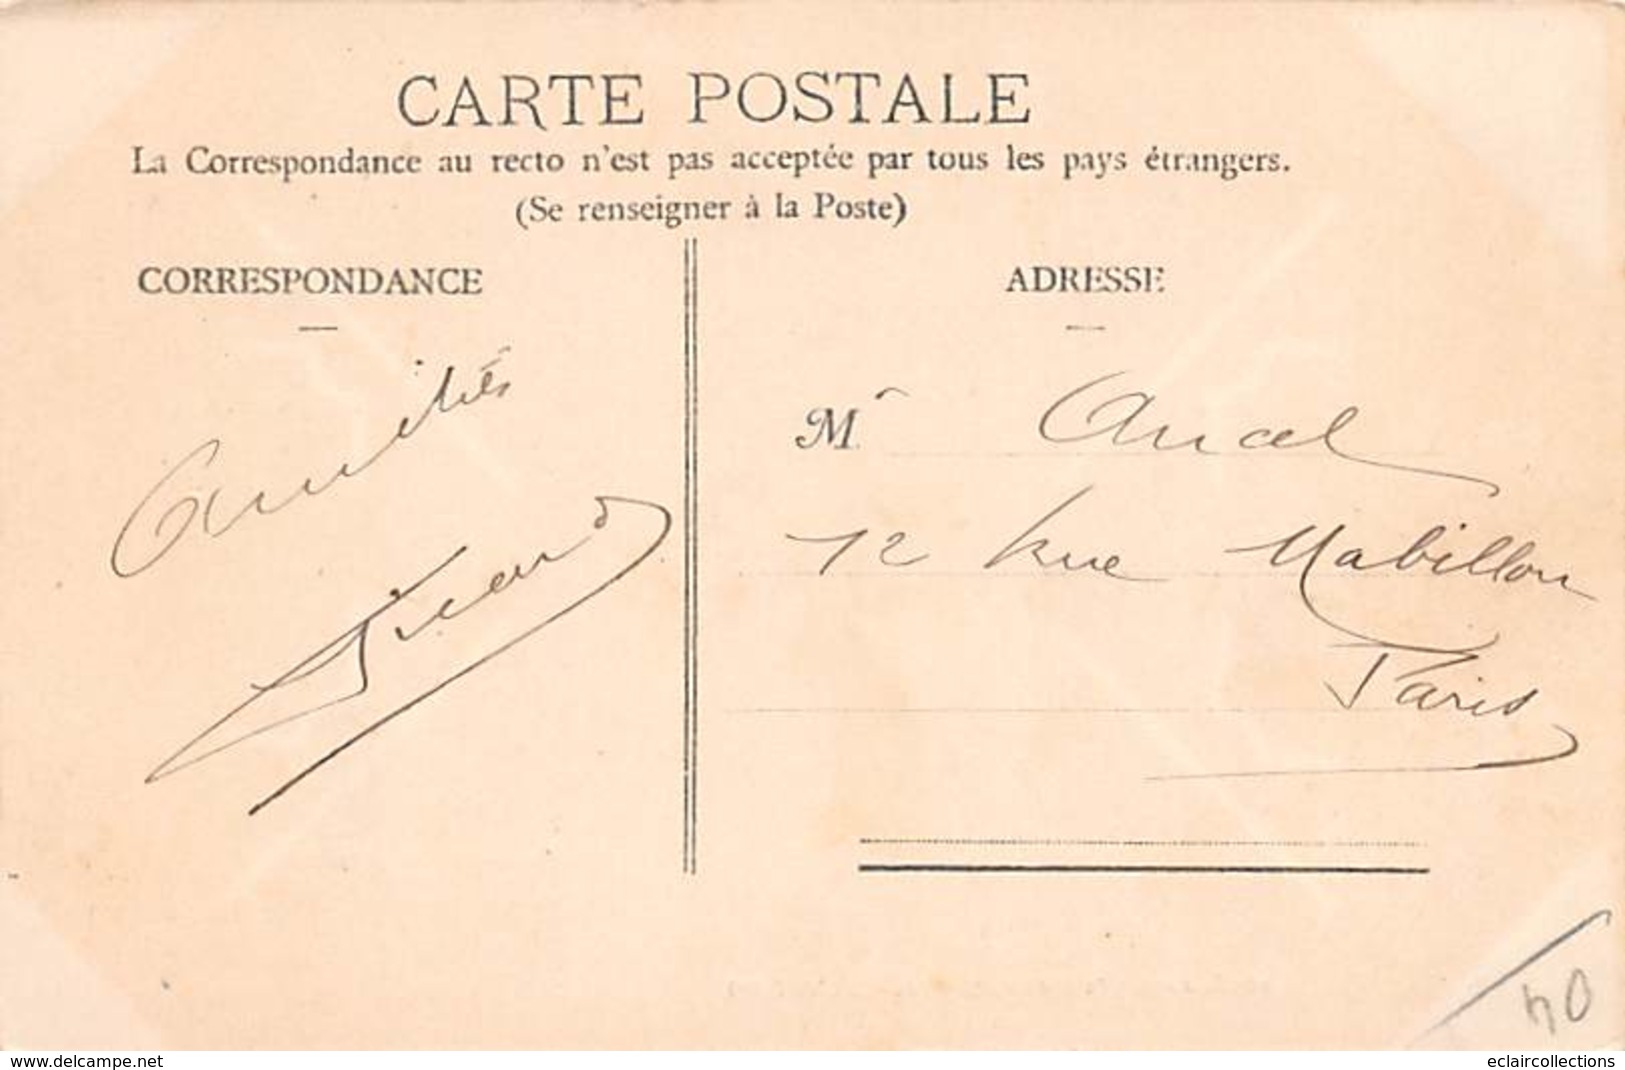 CARTE POSTALE
La Correspondance au recto n'est pas acceptée par tous les pays étrangers.
(Se renseigner à la Poste)
CORRESPONDANCE
Amitiés
ADRESSE
Mr Ancel
12 Rue Mabillon
Paris
40
www.delcampe.net
eclaircollections